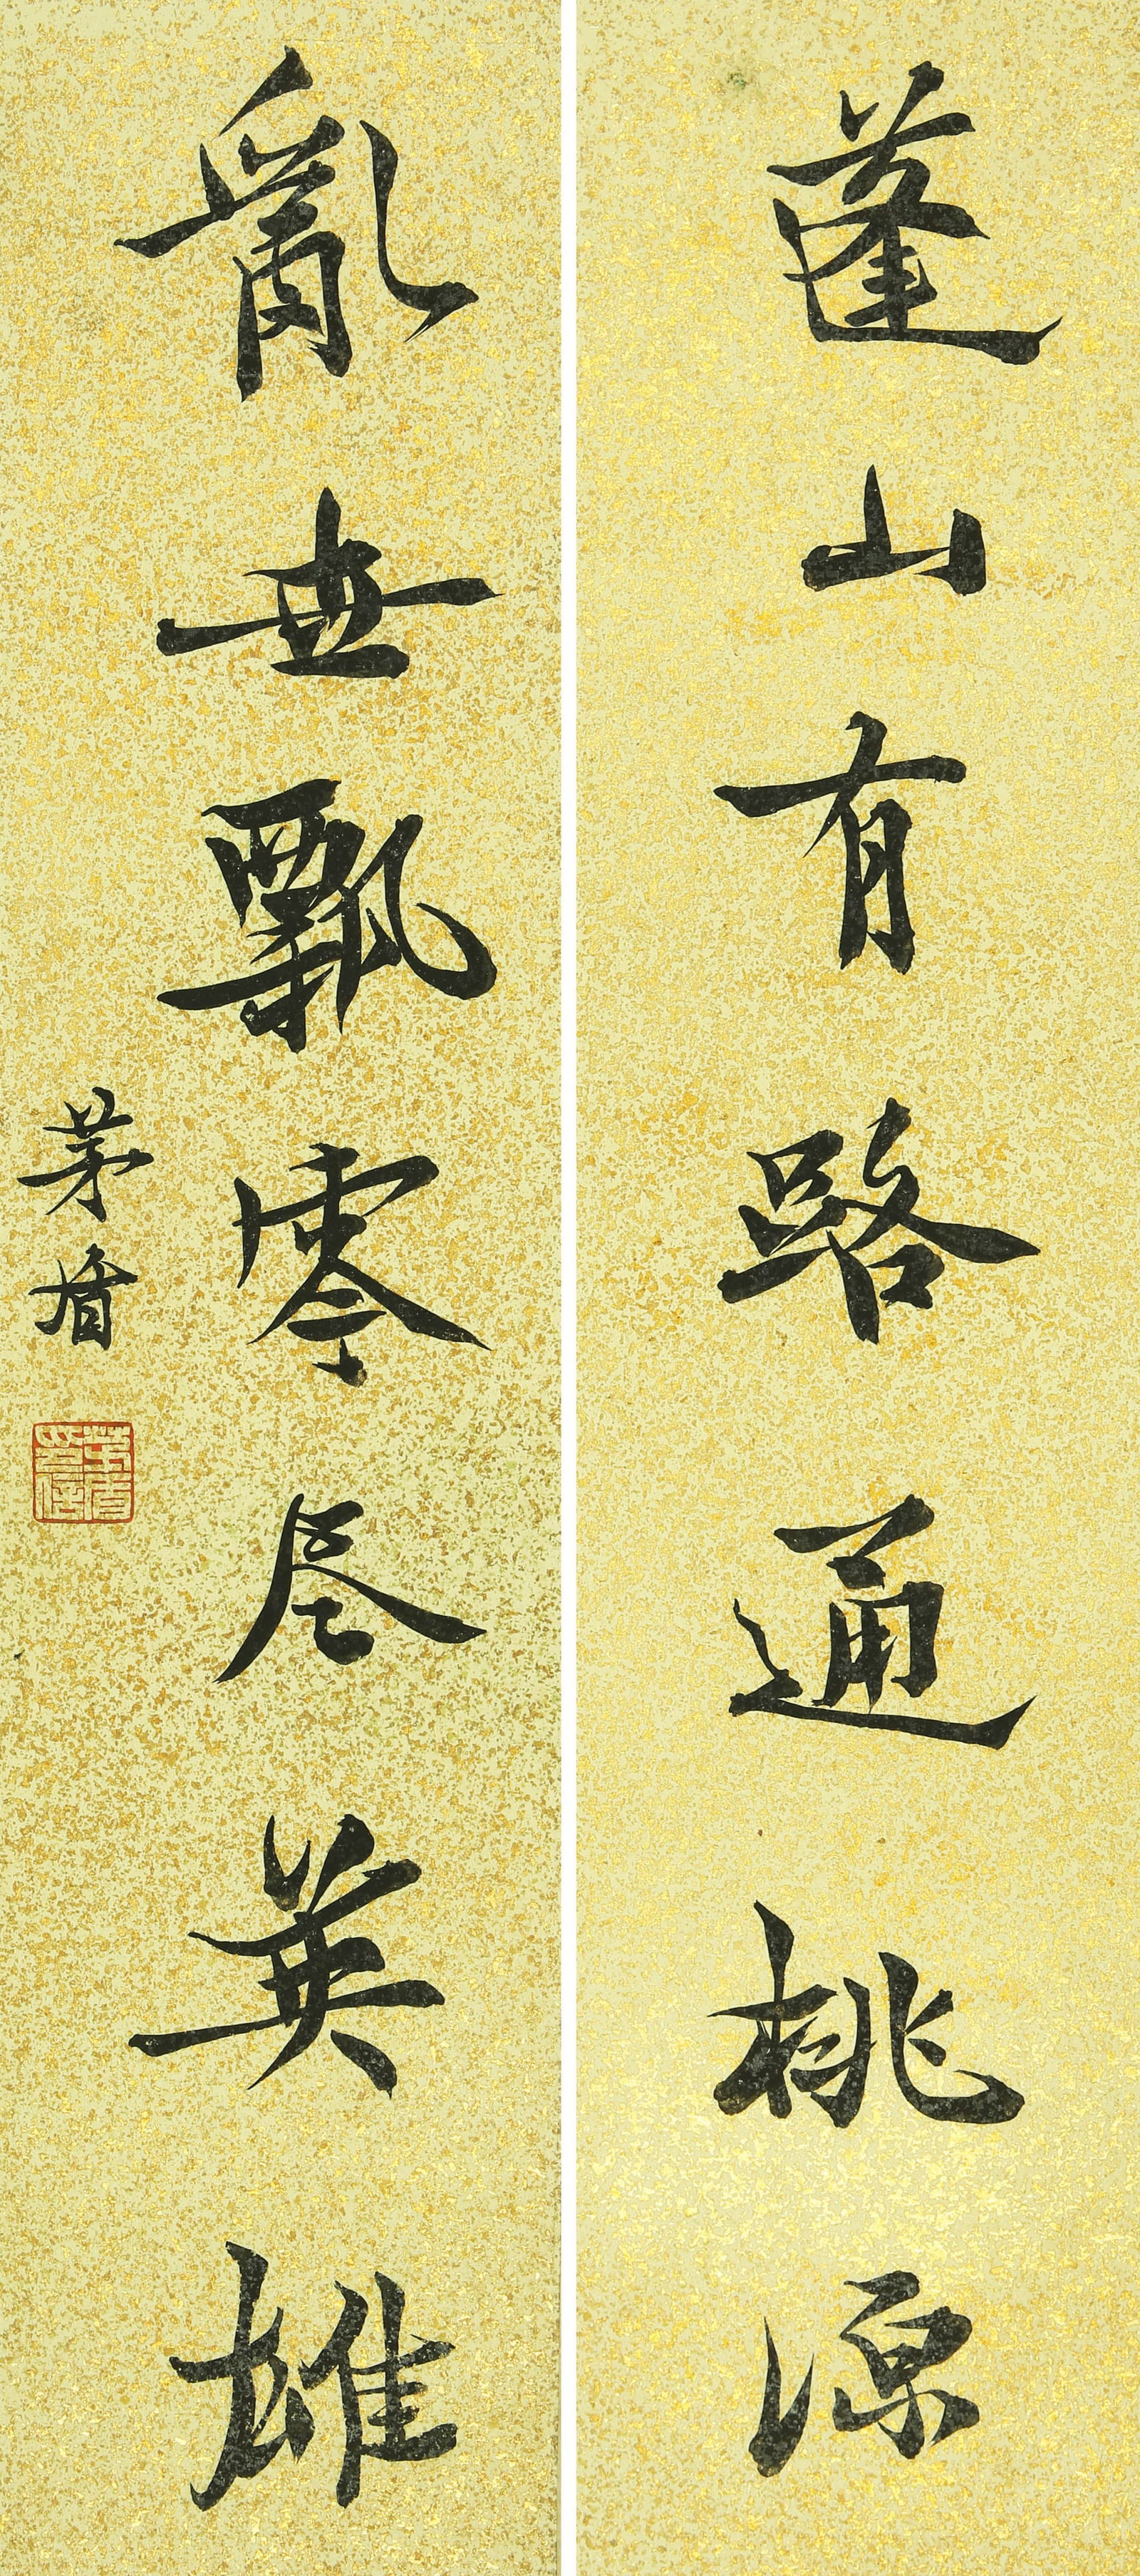 蓬山有路通桃源
亂世飄零尽英雄
茅盾